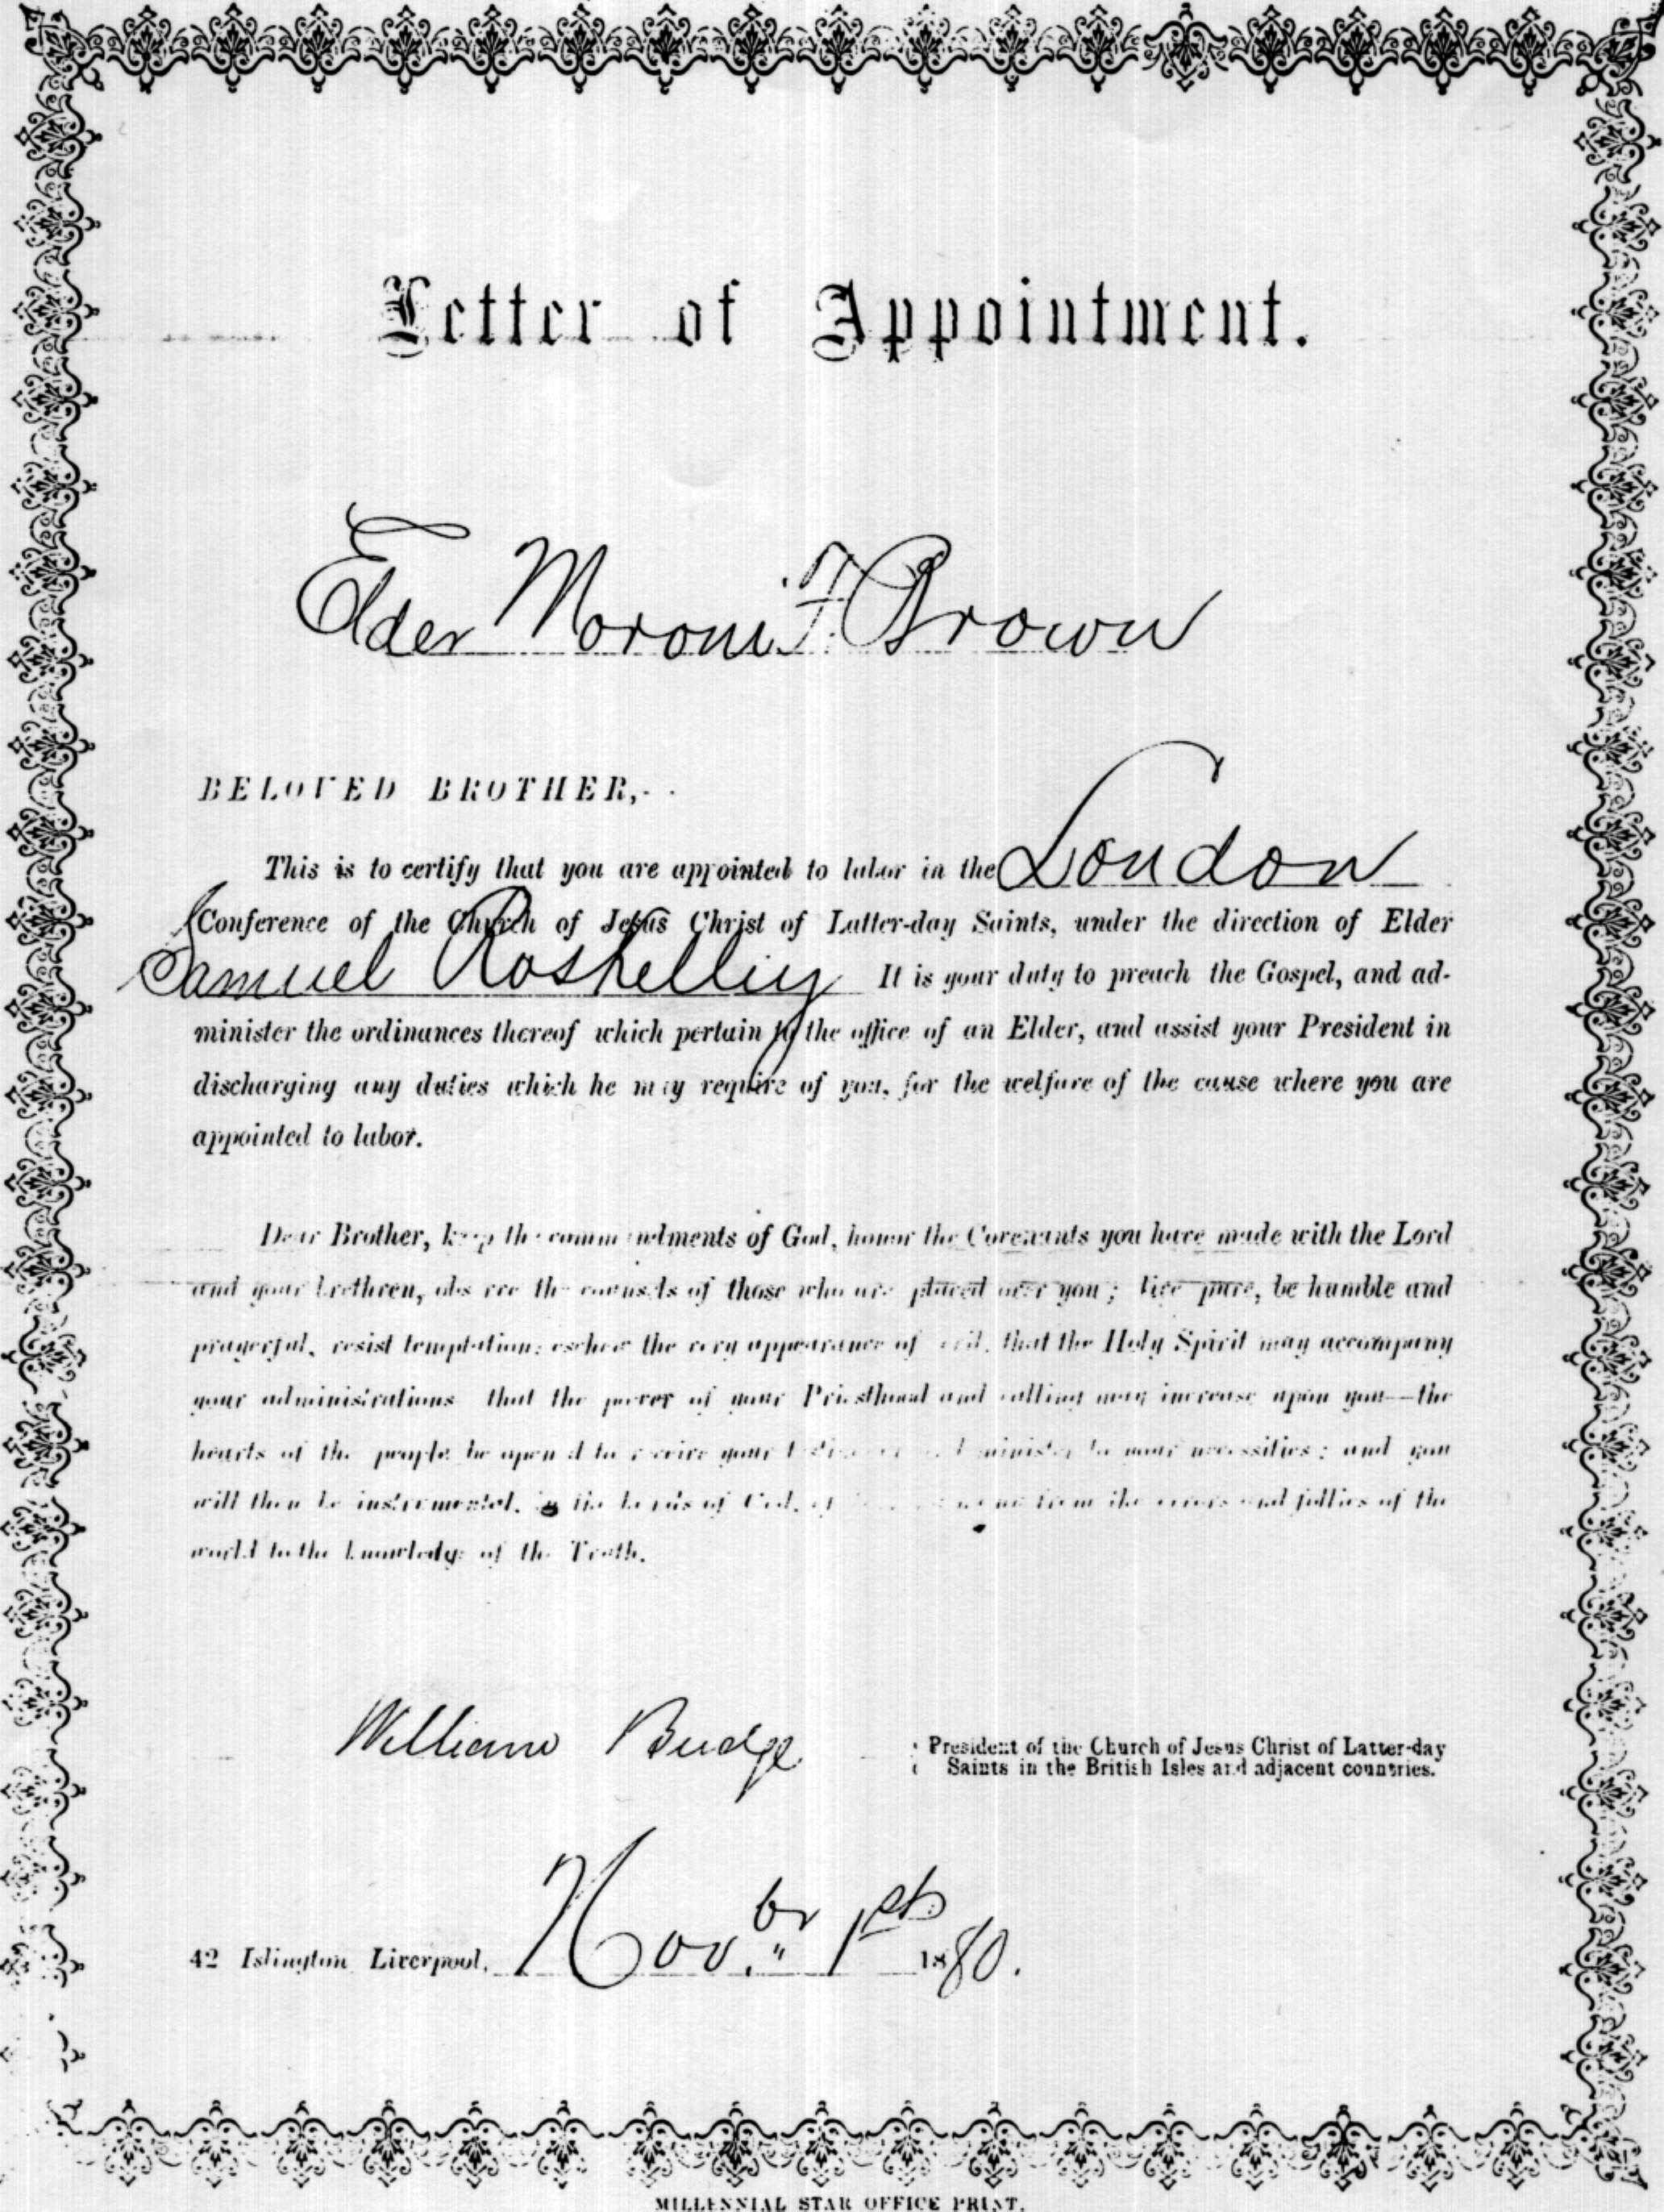 Letter of Appointment.
Elder Moroni F. Brown
BELOVED BROTHER,
This is to certify that you are appointed to labor in the London
Conference of the Church of Jesus Christ of Latter-day Saints, under the direction of Elder
Samuel Roskelley It is your duty to preach the Gospel, and ad-
minister the ordinances thereof which pertain to the office of an Elder, and assist your President in
discharging any duties which he may require of you, for the welfare of the cause where you are
appointed to labor.
Dear Brother, keep the commandments of God, honor the Covenants you have made with the Lord
and your brethren, observe the counsels of those who are placed over you; live pure, be humble and
prayerful, resist temptation; eschew the very appearance of evil, that the Holy Spirit may accompany
your administrations that the power of your Priesthood and calling may increase upon you—the
hearts of the people be opened to receive your minister to your necessities; and you
will then be instrumental, in the hands of God, from the errors and follies of the
world to the knowledge of the Truth.
William Budge
President of the Church of Jesus Christ of Latter-day
Saints in the British Isles and adjacent countries.
42 Islington Liverpool, Novbr. 1st 1880.
MILLENNIAL STAR OFFICE PRINT.